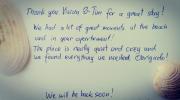 Thank you Vivian & Tim for a great stay!
We had a lot of great moments at the beach
and in your apartment!
The place is really quiet and cozy and
we found everything we needed. Obrigado!
We will be back soon!